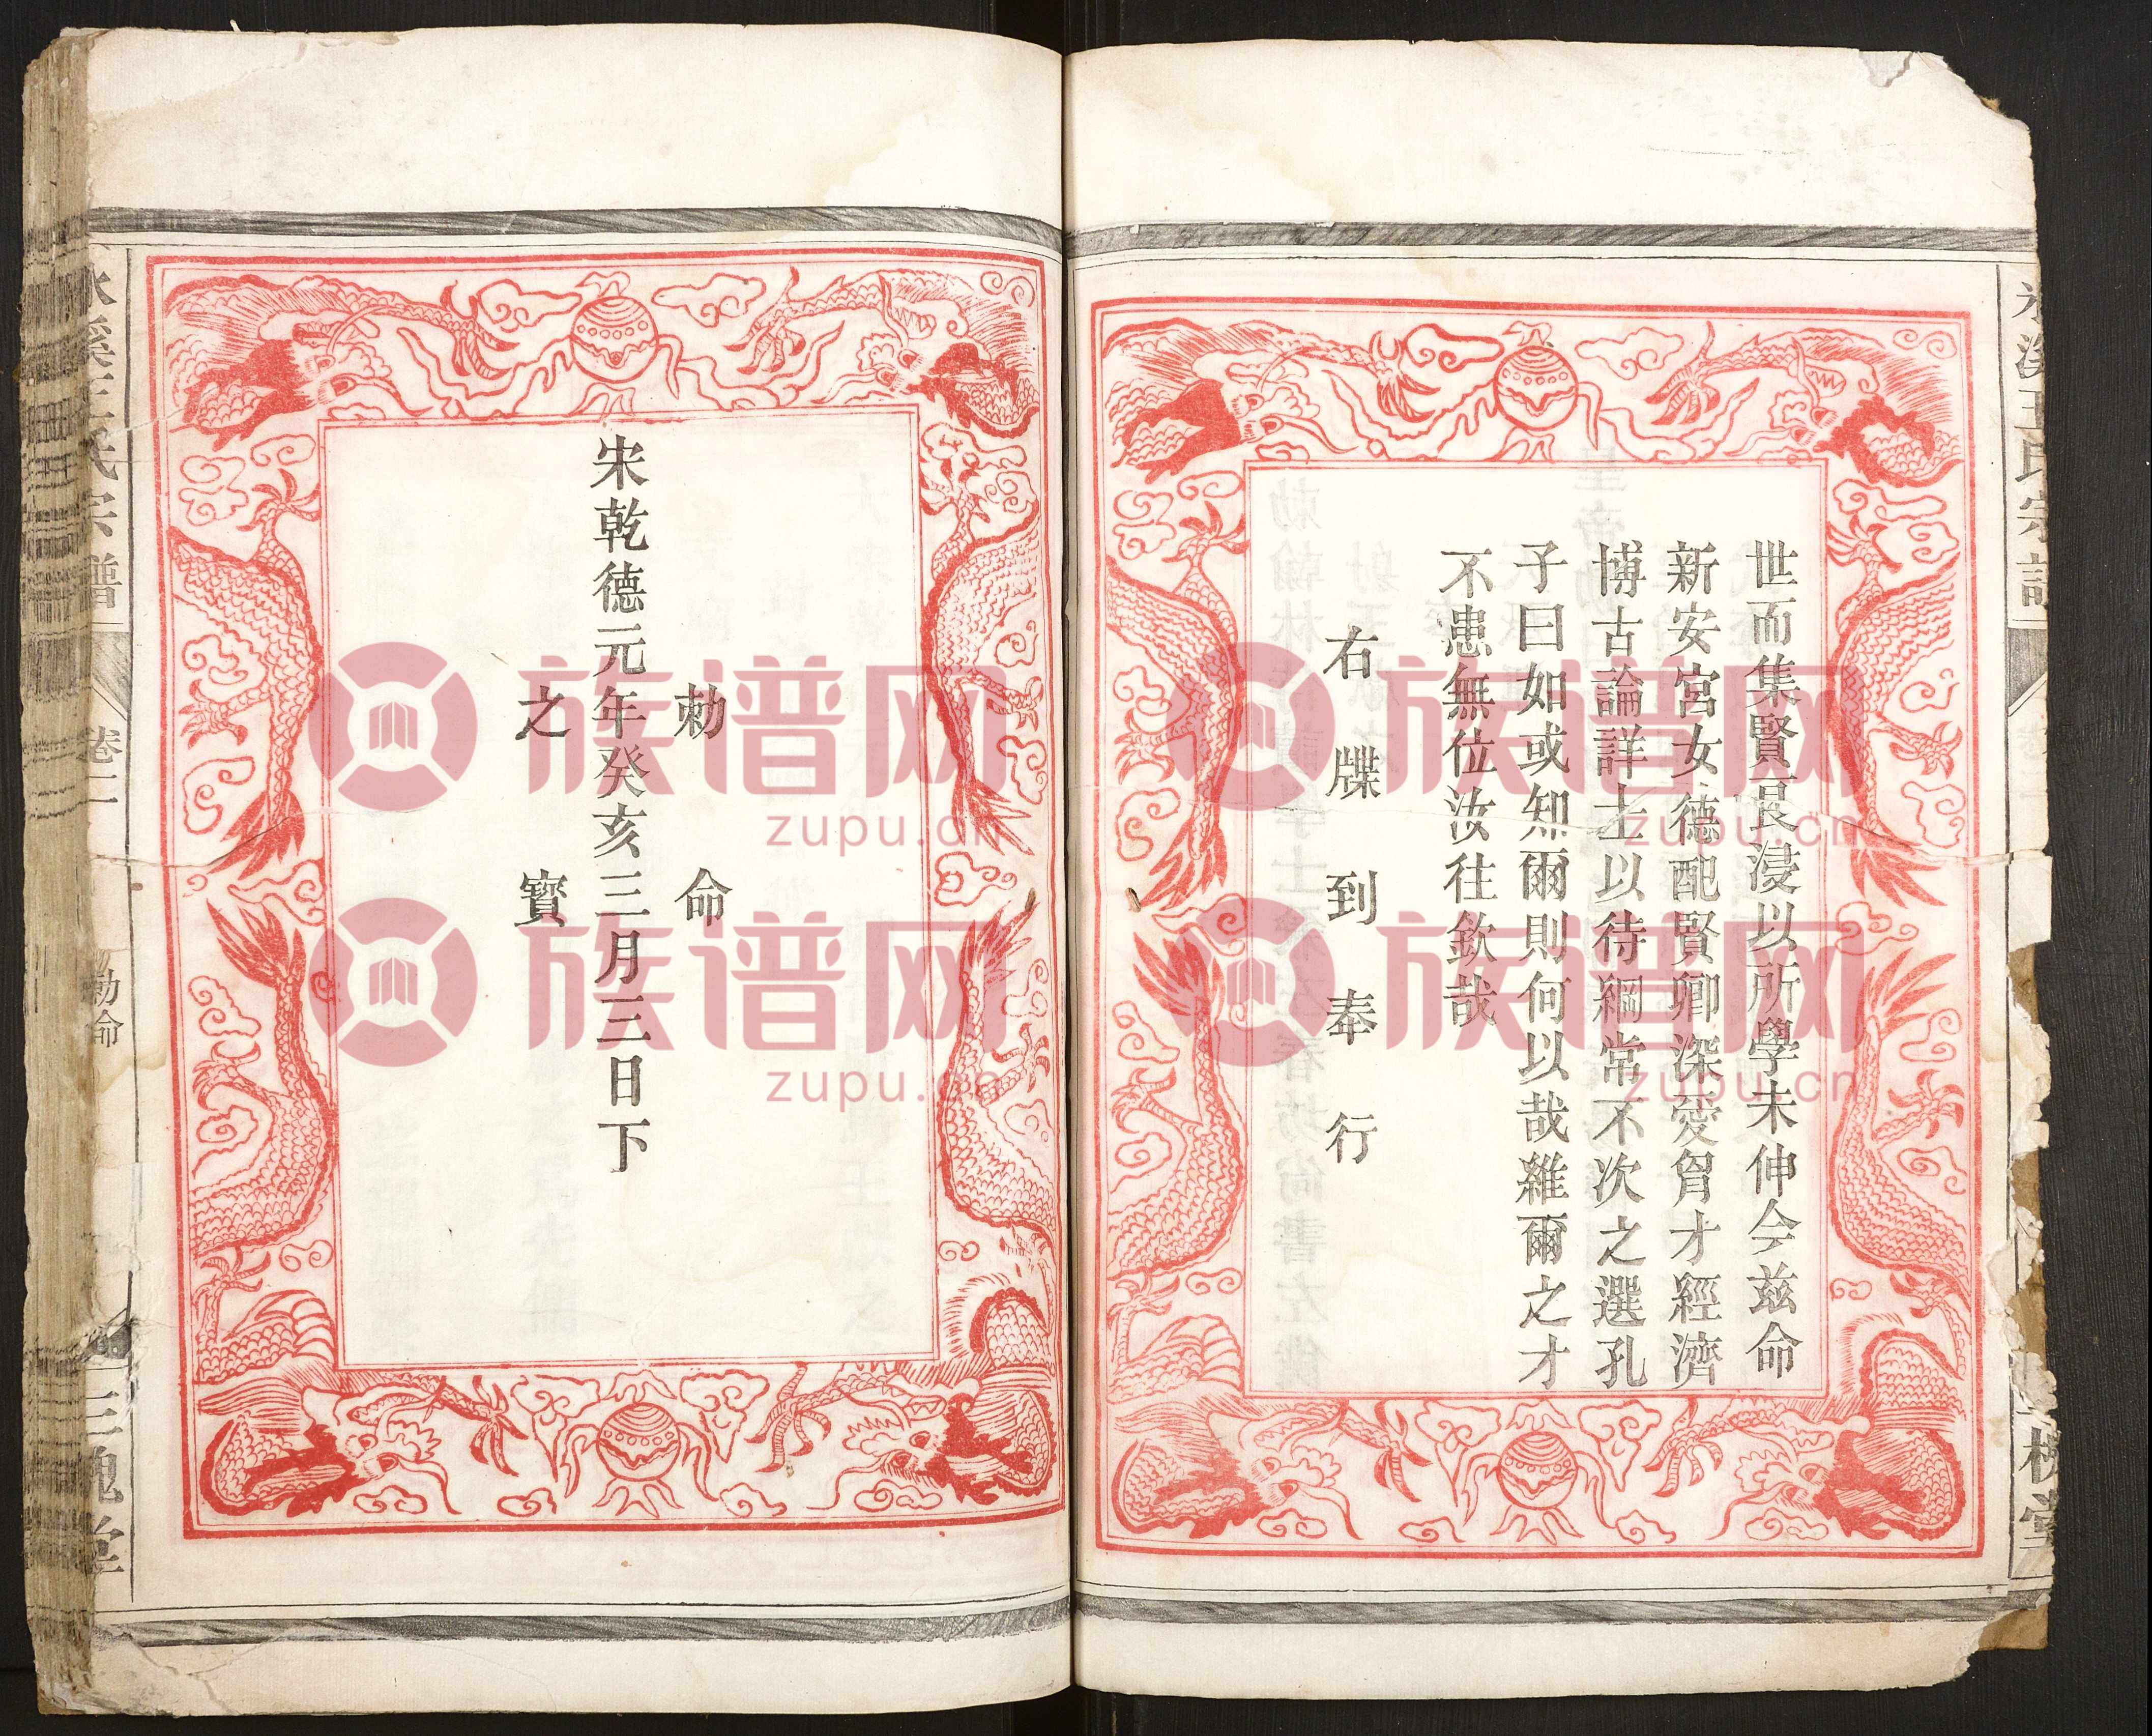 世而集賢良浸以所學未伸今茲命
新安宮女德配賢卿深愛胷才經濟
博古論詳士以待綱常不次之選孔
子曰如或知爾則何以哉雖爾之才
不患無位汝往欽哉
右牒到奉行
勅命
宋乾德元年癸亥三月三日下
之寳
氏宗譜
卷二
勅命
三槐堂
族谱网
zupu.cn
族谱网
zupu.cn
族谱网
zupu.cn
族谱网
zupu.cn